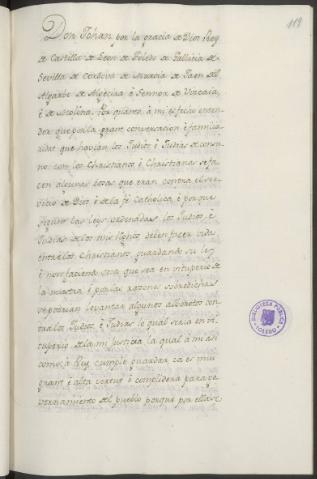 119
Don Johan por la gracia de Dios Rey
de Castilla de Leon de Toledo de Gallicia de
Sevilla de Cordova de Murcia de Jaen del
Algarbe de Algecira è Sennor de Vizcaia,
è de Molina. Por quanto à mi es fecho enten-
der que por la grant conversacion è familia-
ridat que havian los Judios è Judias de
con los Christianos è Christianas se fa-
cen algunas cosas que eran contra el ser-
vicio de Dios è de la fè Catholica è porque
segunt las leys ordenadas los Judios è
Judias de los mis Regnos deben facer vida
entre los Christianos guardando su ley
è non faciendo cosa que sea en vituperio de
la nuestra è por las razones sobredichas
se podrian levantar algunos alborotos con-
tra los Judios è Judias lo qual seria en vi-
tuperio de la mi Justicia la qual à mi asi
como à Rey cumple guardar ca es mui
grant è alta virtud è complidera para go-
vernamiento del pueblo porque por ella se
BIBLIOTECA PUBLICA
TOLEDO